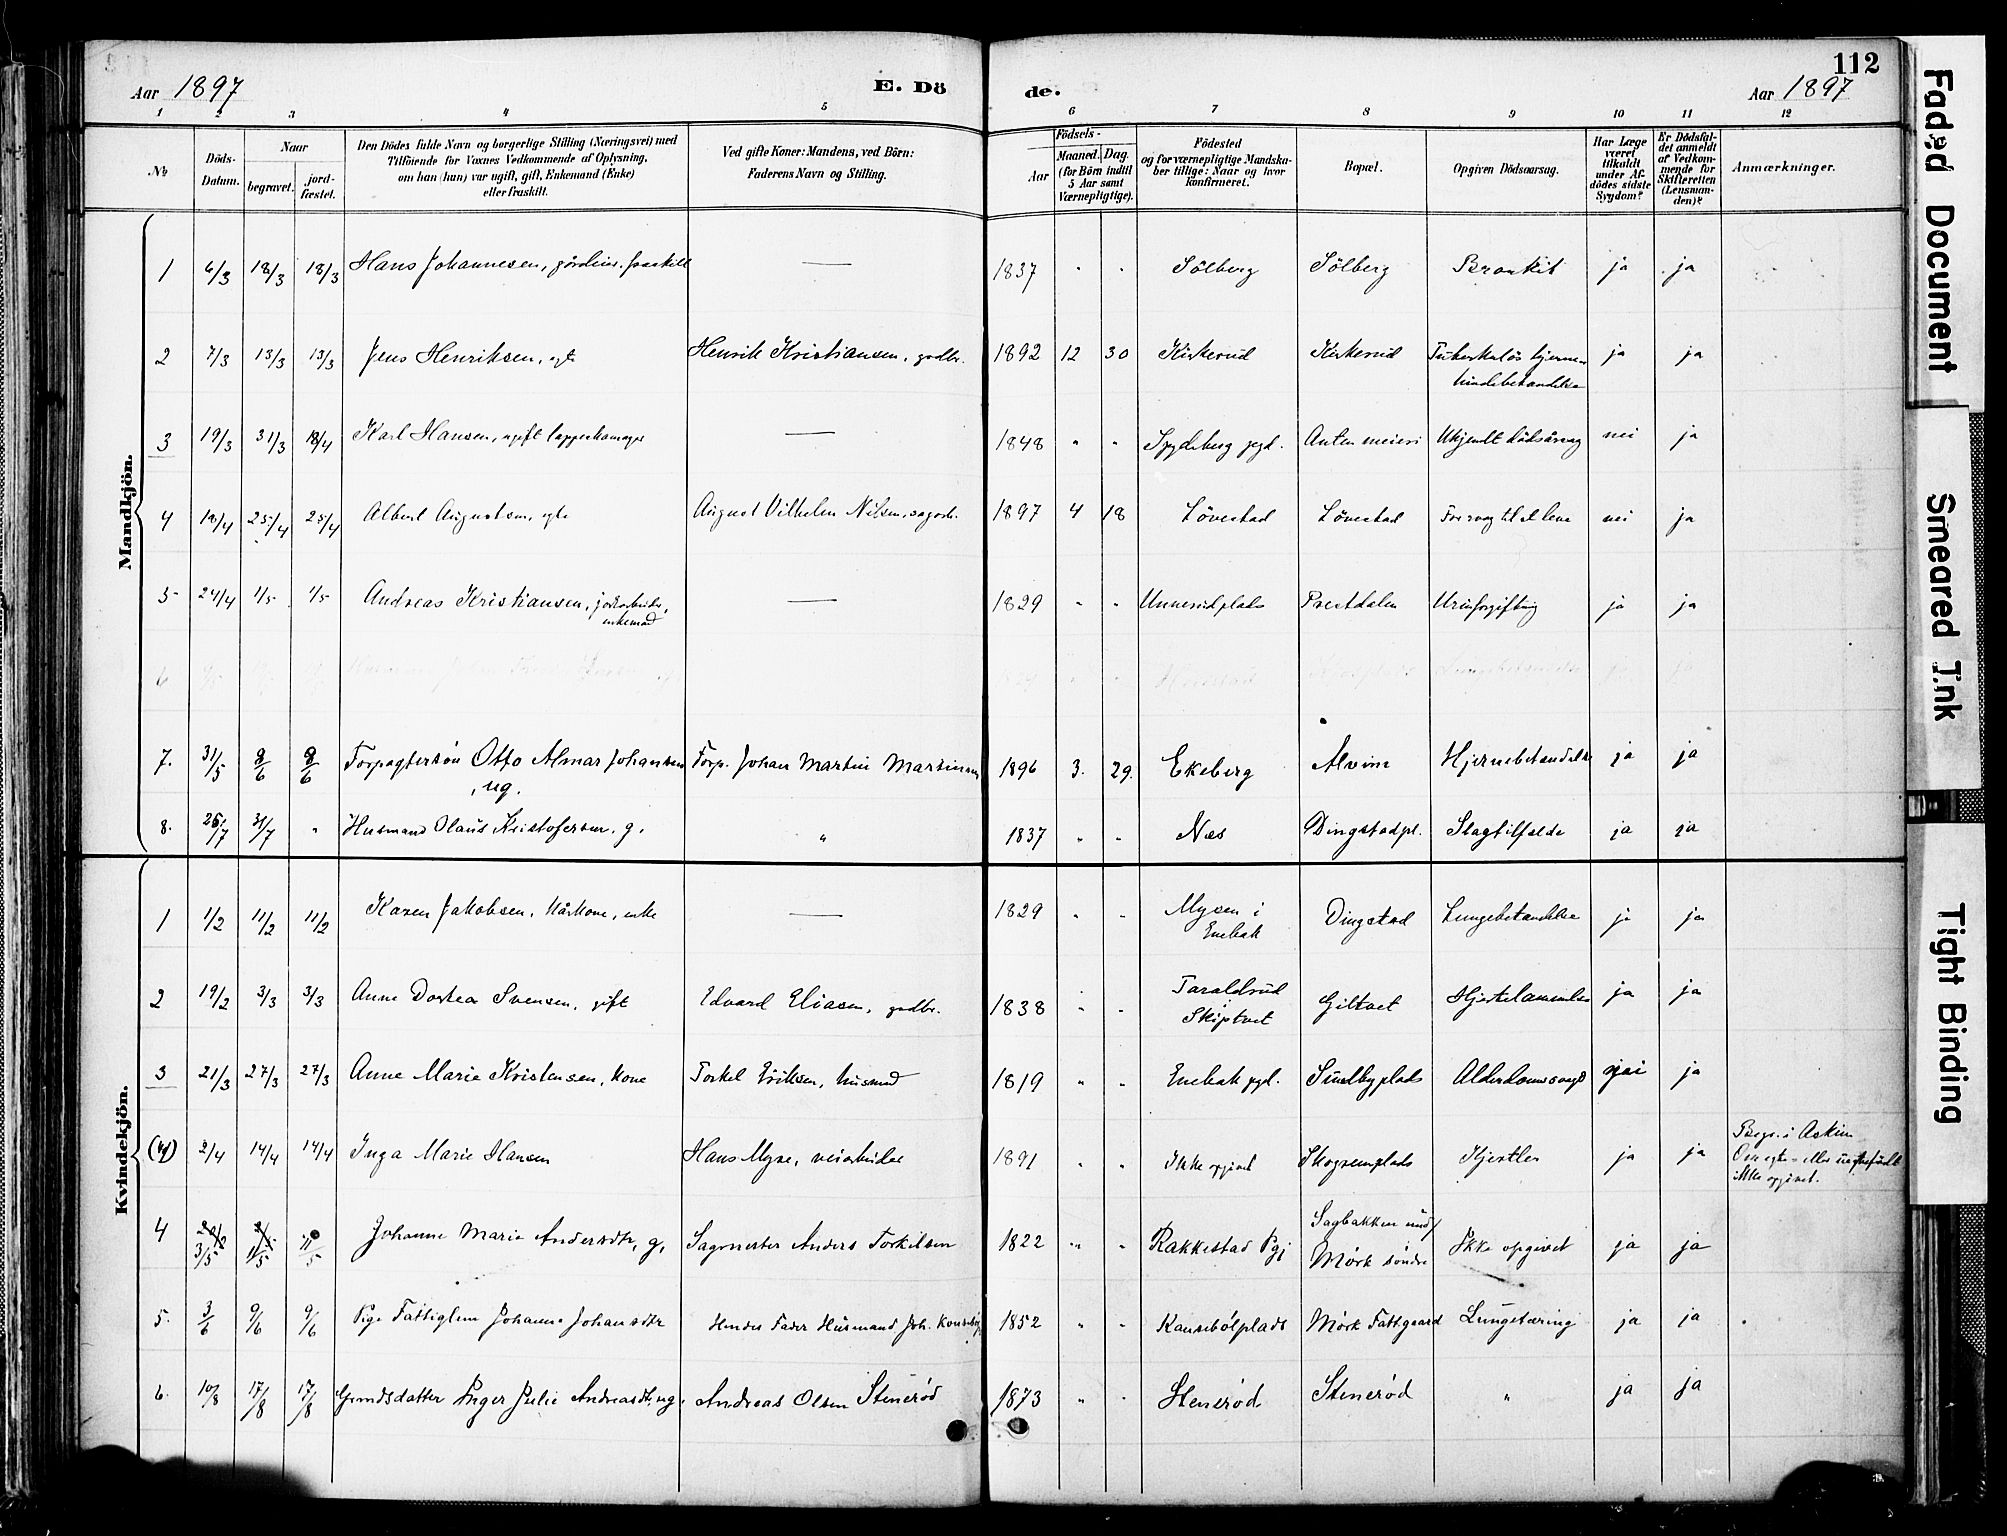 112
Aar 1897
E. Dö
de.
Aar 1897
1 2 3 4 5 6 7 8 9 10 11 12
No
Döds-Datum.
Naar
begravet.
jord-fæstet.
Den Dödes fulde Navn og borgerlige Stilling (Næringsvei) med
Tilföiende for Voxnes Vedkommende af Oplysning,
om han (hun) var ugift, gift, Enkemand (Enke)
eller fraskilt.
Ved gifte Koner: Mandens, ved Börn:
Faderens Navn og Stilling.
Födsels-
Aar
Maaned. Dag.
(for Börn indtil
5 Aar samt
Værnepligtige).
Födested
og for værnepligtige Mandska-
ber tillige: Naar og hvor
konfirmeret.
Bopæl.
Opgiven Dödsaarsag.
Har Læge
været
tilkaldt
under Af-
dödes sidste
Sygdom?
Er Dödsfal-
det anmeldt
af Vedkom-
mende for
Skifteretten
(Lensman-
den)?
Anmærkninger.
Mandkjön.
1 6/3 18/3 18/3 Hans Johannesen, fraskilt — 1837 " " Sölberg Sölberg Bronkit ja ja
2 7/3 13/3 13/3 Jens Henriksen, egte Henrik Kristiansen, gadbr. 1892 12 30 Kirkerud Kirkerud Tuberkulös hjerne-
hindebetændelse ja ja
3 19/3 31/3 18/4 Karl Hansen, ugift — 1848 " " Spydeberg pgd. meieri Ukjendt dödsårsag nei ja
4 18/4 25/4 25/4 Albert Augustsen, egte August Vilhelm Nilsen, sagarb. 1897 4 18 Lövestad Lövestad nei ja
5 24/4 1/5 1/5 Andreas Kristiansen, jordarbeider,
enkemand — 1829 " " Unnerudplads Prestdalen Urinforgiftning ja ja
6
7. 31/5 8/6 8/6 Forpagtersön Otto Almar Johansen
, ug. Forp. Johan Martin Martinsen 1896 3. 29. Ekeberg Alvim Hjernebetændelse ja ja
8. 26/7 31/7 " Husmand Olaus Kristofersen, g. " 1837 " " Næs Dingstadpl. Slagtilfælde ja ja
Kvindekjön.
1 1/2 11/2 11/2 Karen Jakobsen, kårkone, enke — 1829 " " Mysen i
Enebak Dingstad Lungebetændelse ja ja
2 19/2 3/3 3/3 Anne Dortea Svensen, gift Edvard Eliasen, gadbr. 1838 " " Taraldrud
Skiptvet Giltvet Hjertelammelse ja ja
3 21/3 27/3 27/3 Anne Marie Kristensen, kone Torkel Eriksen, husmand 1819 " " Enebak pgd. Sundbyplads Alderdomssvaghed nei ja
(4) 2/4 14/4 14/4 Inga Marie Hansen Hans Myre, veiarbeider 1891 " " Ikke opgivet Skogremplads Kjertler ja ja Begr. i Askim
Om egte- eller uegtefödt
ikke opgivet.
4 3/5 11/5 11/5 Johanne Marie Andersdtr, g, Sagmester Anders Torkilsen 1822 " " Rakkestad Pgj Sagbakken und/
Mörk söndre Ikke opgivet ja ja
5. 3/6 9/6 9/6 Pige Fattiglem Johanne Johansdtr Hendes Fader Husmand Joh. 1852 " " Kansebölplads Mörk Fattgaard Lungetæring ja ja
6. 10/8 17/8 17/8 Grmdsdatter Inger Julie Andreasdtr, ug. Andreas Olsen Stenerød 1873 " " Stenerød Stenerød " ja ja
Faded Document
Smeared Ink
Tight Binding